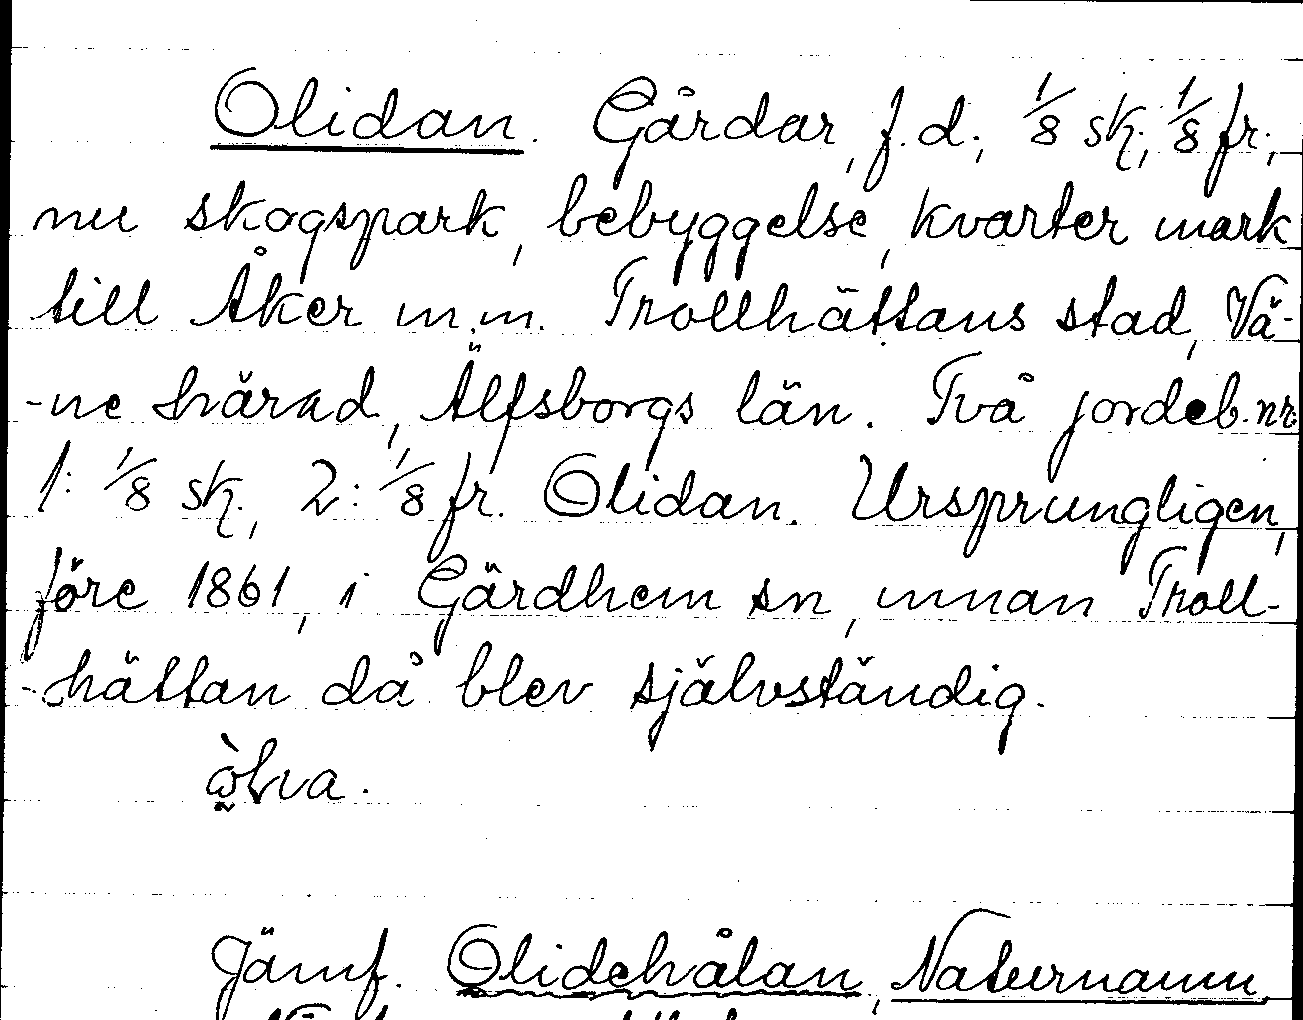 Olidan. Gårdar, f.d., 1/8 sk., 1/8 fr.,
nu skogspark, bebyggelse, kvarter mark
till Åker m.m. Trollhättans stad, Vä-
-ne härad, Älfsborgs län. Två jordeb.nr.
1: 1/8 sk., 2: 1/8 fr. Olidan. Ursprungligen,
före 1861, i Gärdhem sn, innan Troll-
-hättan då blev självständig.
Jämf. Olidehålan, Naturnamn,